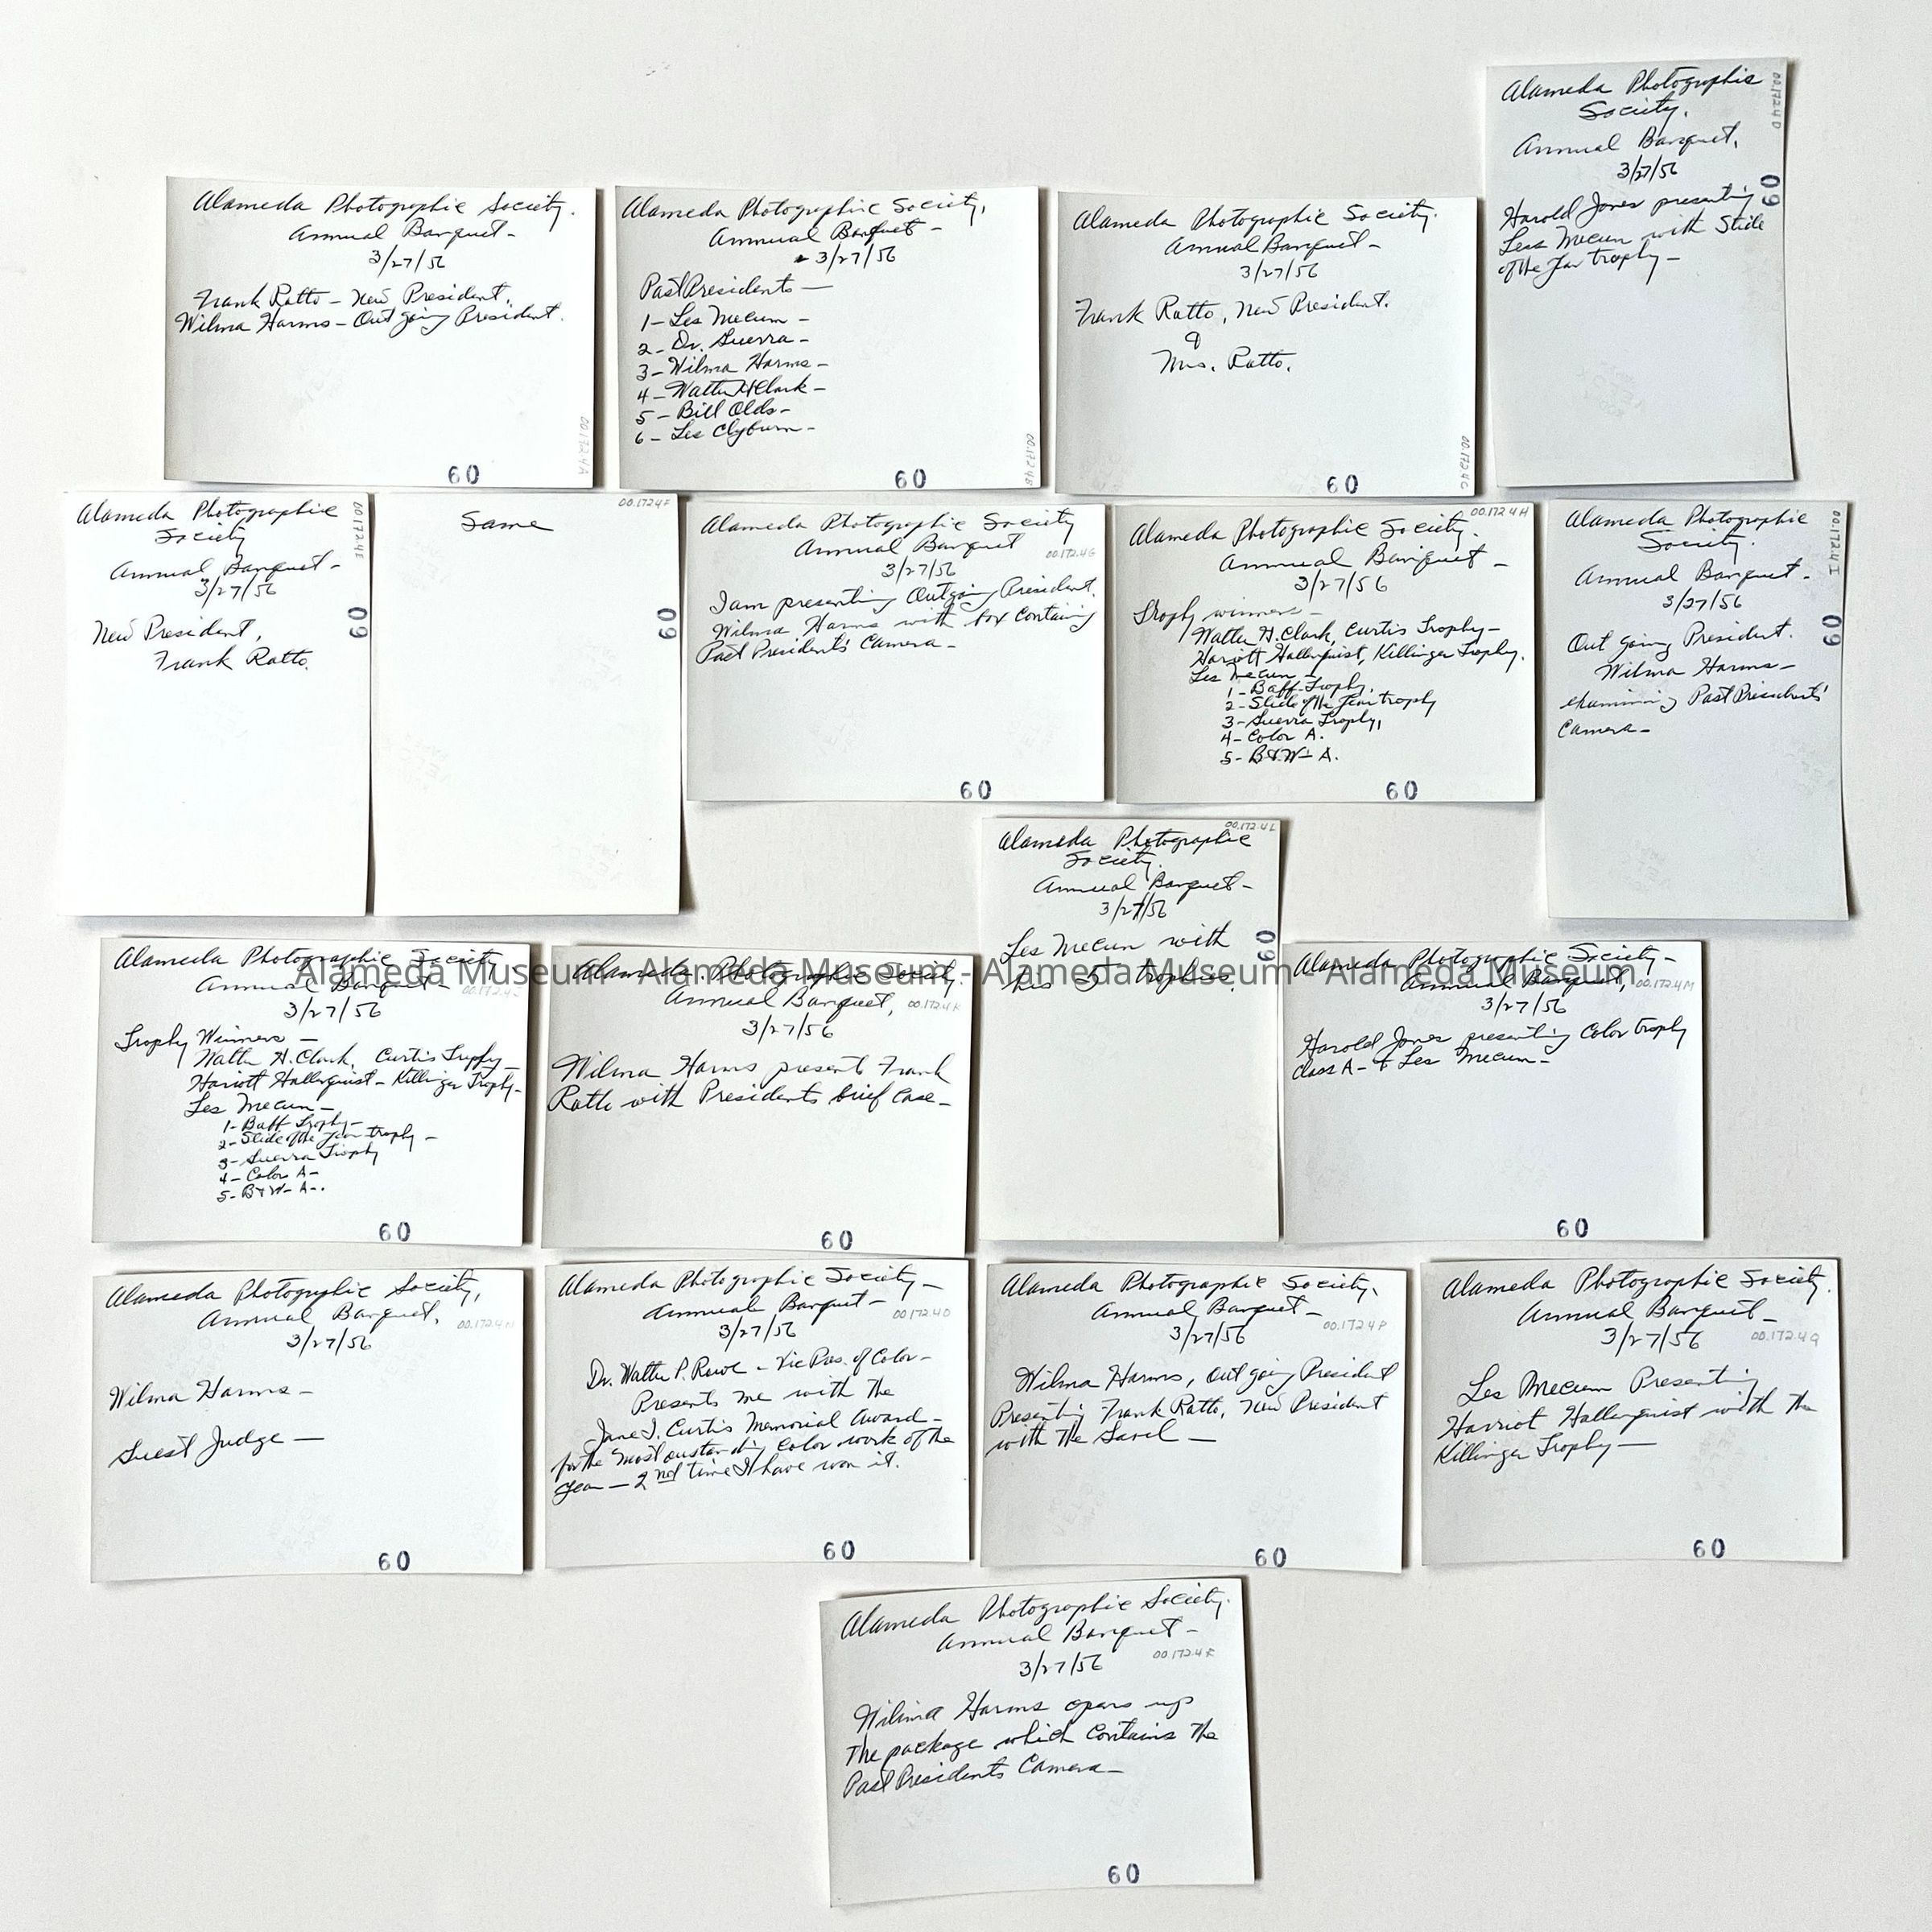 Alameda Photographic
Society.
Annual Banquet,
3/27/56
Harold Jones presenting
Less Mecum with Slide
of the Year trophy –
00.172.4 D
60
Alameda Photographic Society.
Annual Banquet –
3/27/56
Frank Ratto – New President.
Wilma Harms – Out going President.
00.172.4A
60
Alameda Photographic Society,
Annual Banquet –
3/27/56
Past Presidents –
1 – Les Mecum –
2 – Dr. Guerra –
3 – Wilma Harms –
4 – Walter H Clark –
5 – Bill Olds –
6 – Les Clyburn –
00.172.4B
60
Alameda Photographic Society.
Annual Banquet –
3/27/56
Frank Ratto, New President.
&
Mrs. Ratto.
00.172.4C
60
Alameda Photographic
Society
Annual Banquet –
3/27/56
New President,
Frank Ratto.
00.172.4E
60
00.172.4F
Same
60
Alameda Photographic Society
Annual Banquet
00.172.4G
3/27/56
I am presenting Outgoing President.
Wilma Harms with box containing
Past Presidents' Camera –
60
00.172.4 H
Alameda Photographic Society.
Annual Banquet –
3/27/56
Trophy winners –
Walter H. Clark, Curtis Trophy –
Harriott Hallenquist, Killinger Trophy.
Les Mecum –
1 – Baff Trophy.
2 – Slide of the Year trophy
3 – Guerra Trophy,
4 – Color A.
5 – B & W – A.
60
Alameda Photographic
Society.
Annual Banquet –
3/27/56
Out going President.
Wilma Harms –
examining Past Presidents'
Camera –
00.172.4 I
60
Alameda Photographic Society
Annual Banquet –
3/27/56
Trophy Winners –
Walter H. Clark, Curtis Trophy –
Hariott Hallenquist – Killinger Trophy –
Les Mecum –
1 – Baff Trophy –
2 – Slide of the Year trophy –
3 – Guerra Trophy
4 – Color A –
5 – B & W – A –.
60
Alameda Photographic Society.
Annual Banquet,
00.172.4K
3/27/56
Wilma Harms present Frank
Ratto with Presidents brief case –
60
00.172.4L
Alameda Photographic
Society.
Annual Banquet –
3/27/56
Les Mecum with
his 5 trophies.
60
Alameda Photographic Society –
Annual Banquet,
00.172.4M
3/27/56
Harold Jones presenting Color trophy
Class A – to Les Mecum –
60
Alameda Museum - Alameda Museum - Alameda Museum - Alameda Museum
Alameda Photographic Society,
Annual Banquet,
00.172.4N
3/27/56
Wilma Harms –
Guest Judge –
60
Alameda Photographic Society –
Annual Banquet –
00.172.4O
3/27/56
Dr. Walter P. Rowe – Vic Pres. of Color –
Presents me with the
Jane I. Curtis Memorial Award –
for the most oustanding Color work of the
year – 2nd time I have won it.
60
Alameda Photographic Society,
Annual Banquet –
00.172.4P
3/27/56
Wilma Harms, out going President
Presenting Frank Ratto, New President
with the Gavel –
60
Alameda Photographic Society.
Annual Banquet –
00.172.4Q
3/27/56
Les Mecum Presenting
Harriot Hallenquist with the
Killinger Trophy –
60
Alameda Photographic Society.
Annual Banquet –
3/27/56
Wilma Harms opens up
the package which contains the
Past Presidents Camera –
60